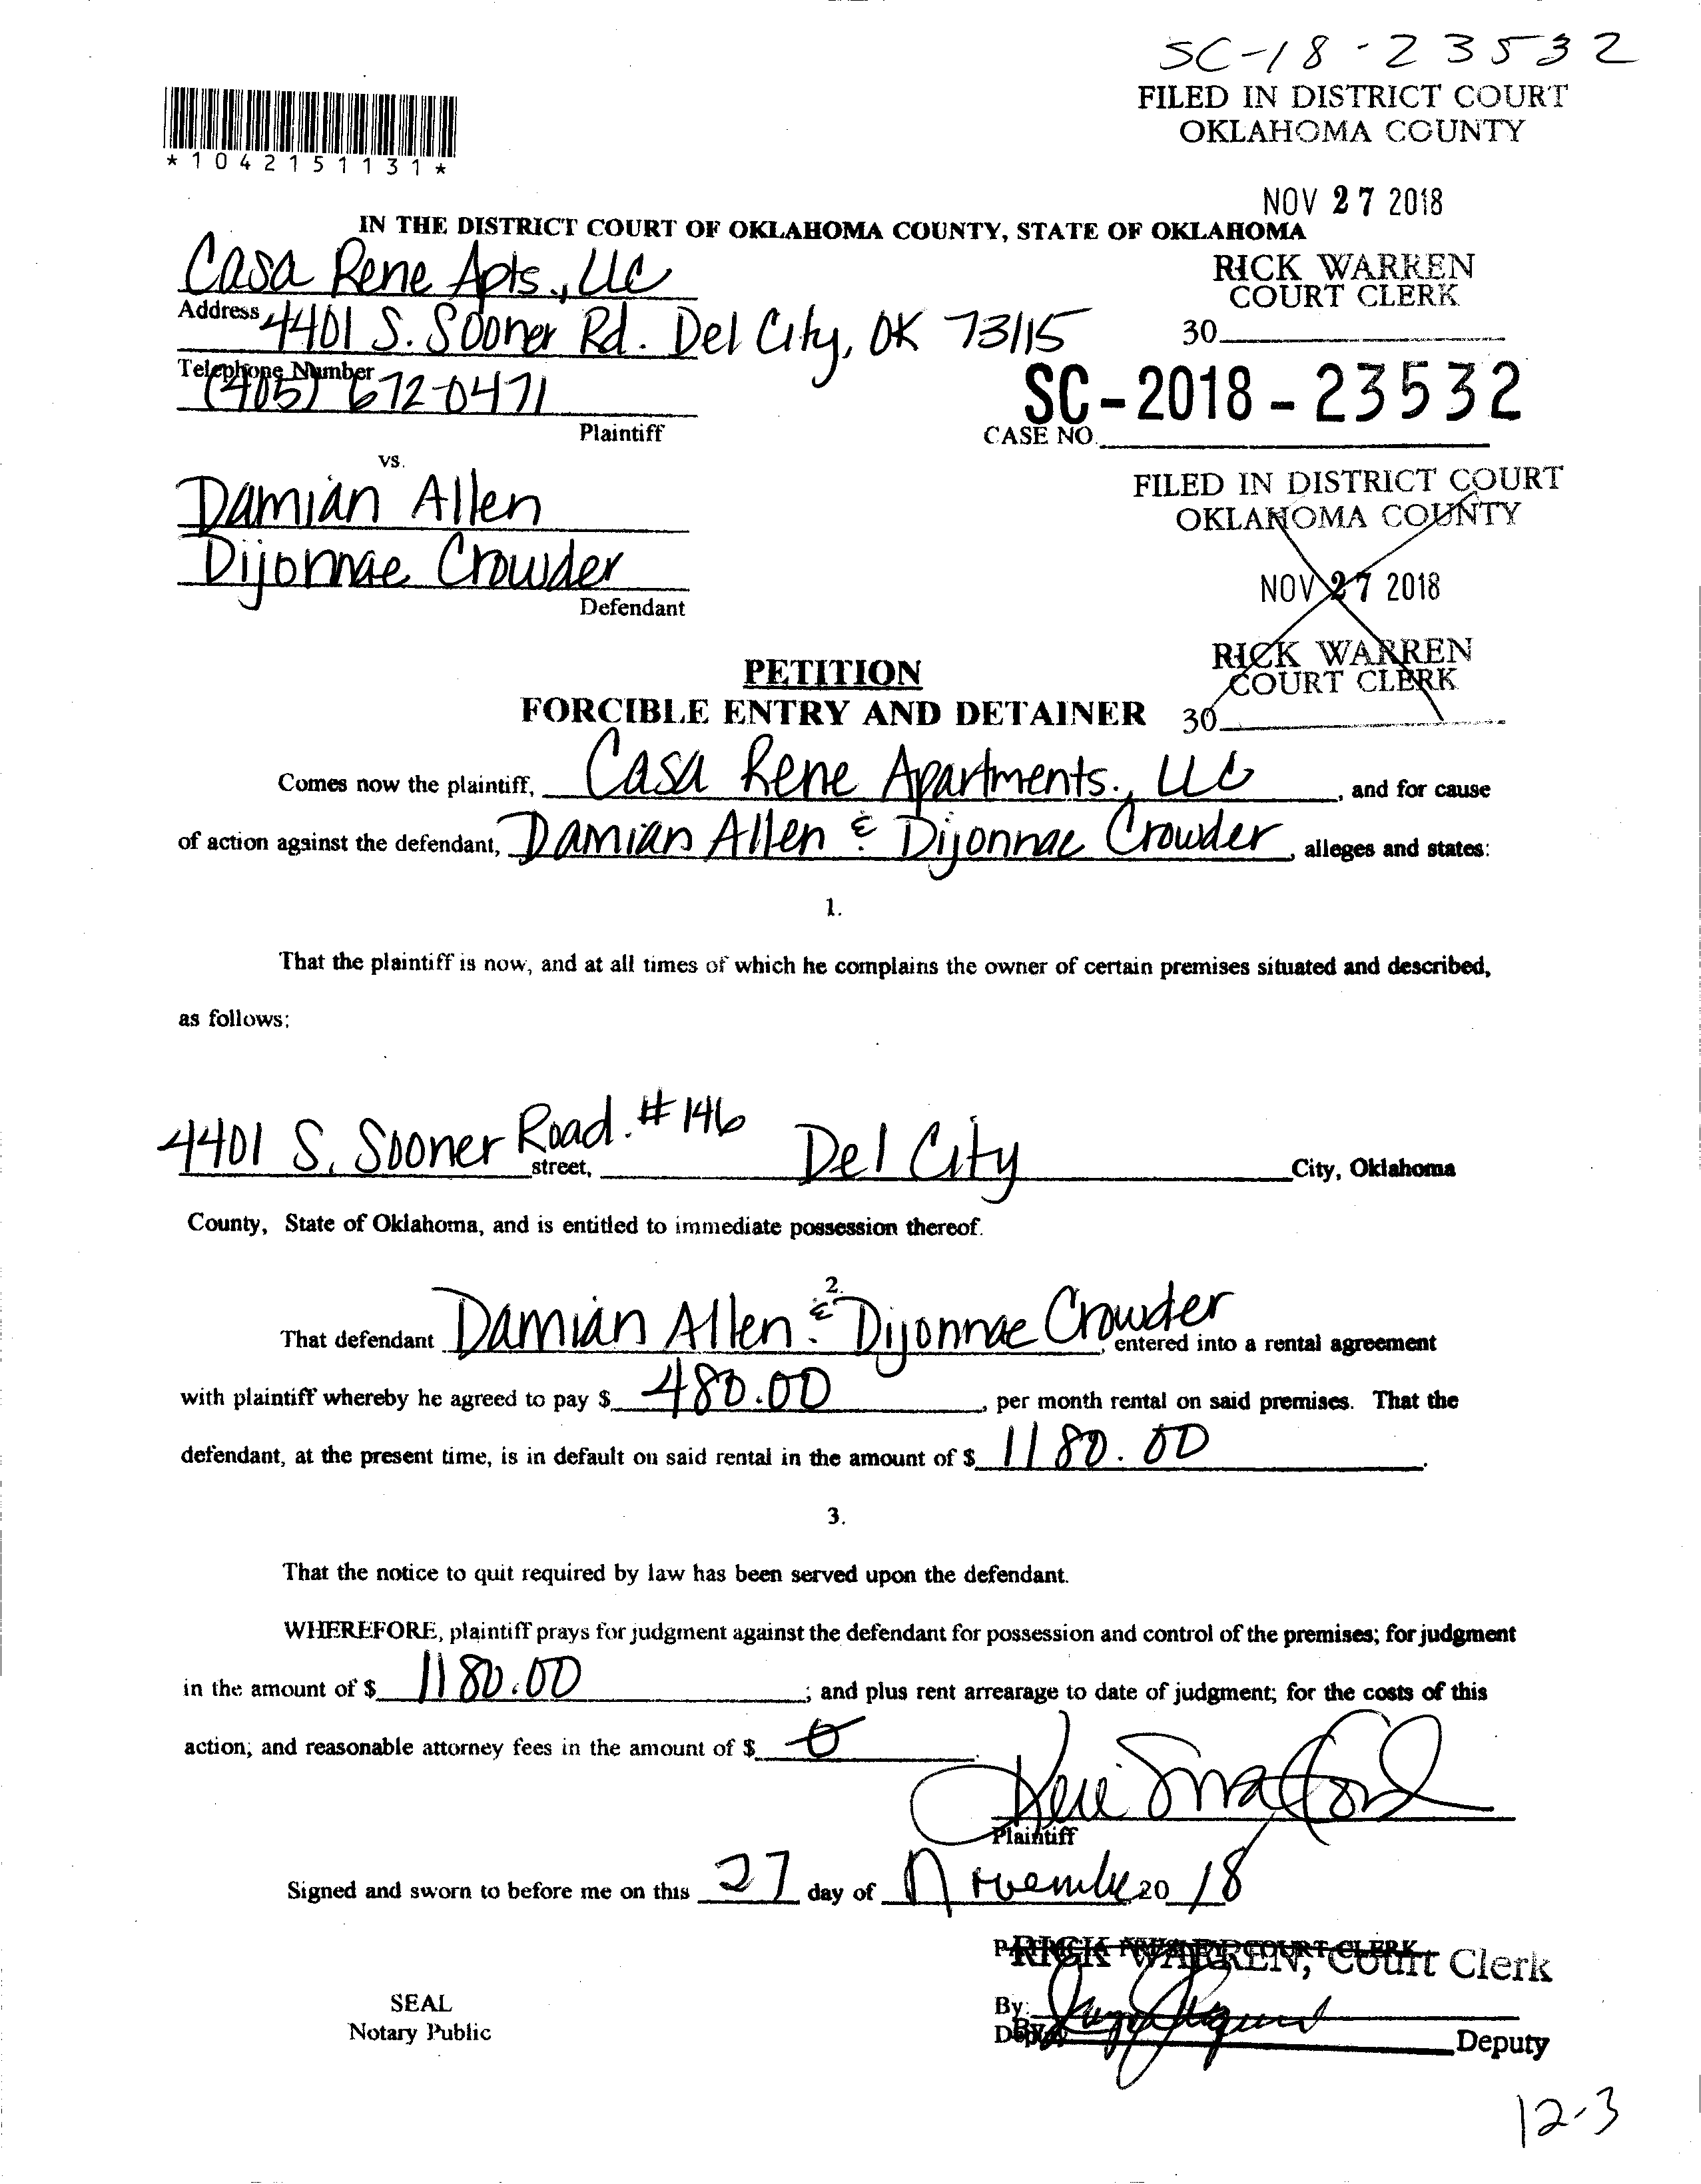 SC-18-23532
FILED IN DISTRICT COURT
OKLAHOMA COUNTY
*1042151131*
NOV 27 2018
IN THE DISTRICT COURT OF OKLAHOMA COUNTY, STATE OF OKLAHOMA
Casa Rene Apts., LLC
RICK WARREN
COURT CLERK
Address 4401 S. Sooner Rd. Del City, OK 73115
30
Telephone Number
(405) 672-0471
SC-2018-23532
Plaintiff
CASE NO.
vs.
Damian Allen
FILED IN DISTRICT COURT
OKLAHOMA COUNTY
Dijonnae Crowder
NOV 27 2018
Defendant
RICK WARREN
COURT CLERK
30
PETITION
FORCIBLE ENTRY AND DETAINER
Comes now the plaintiff, Casa Rene Apartments., LLC, and for cause
of action against the defendant, Damian Allen & Dijonnae Crowder, alleges and states:
1.
That the plaintiff is now, and at all times of which he complains the owner of certain premises situated and described,
as follows:
4401 S. Sooner Road. #146 street, Del City City, Oklahoma
County, State of Oklahoma, and is entitled to immediate possession thereof.
2.
That defendant Damian Allen & Dijonnae Crowder, entered into a rental agreement
with plaintiff whereby he agreed to pay $ 480.00, per month rental on said premises. That the
defendant, at the present time, is in default on said rental in the amount of $ 1180.00.
3.
That the notice to quit required by law has been served upon the defendant.
WHEREFORE, plaintiff prays for judgment against the defendant for possession and control of the premises; for judgment
in the amount of $ 1180.00; and plus rent arrearage to date of judgment; for the costs of this
action; and reasonable attorney fees in the amount of $ 0.
Plaintiff
Signed and sworn to before me on this 27 day of November 20 18
RICK WARREN, Court Clerk
SEAL
Notary Public
By:
By
Deputy
12-3